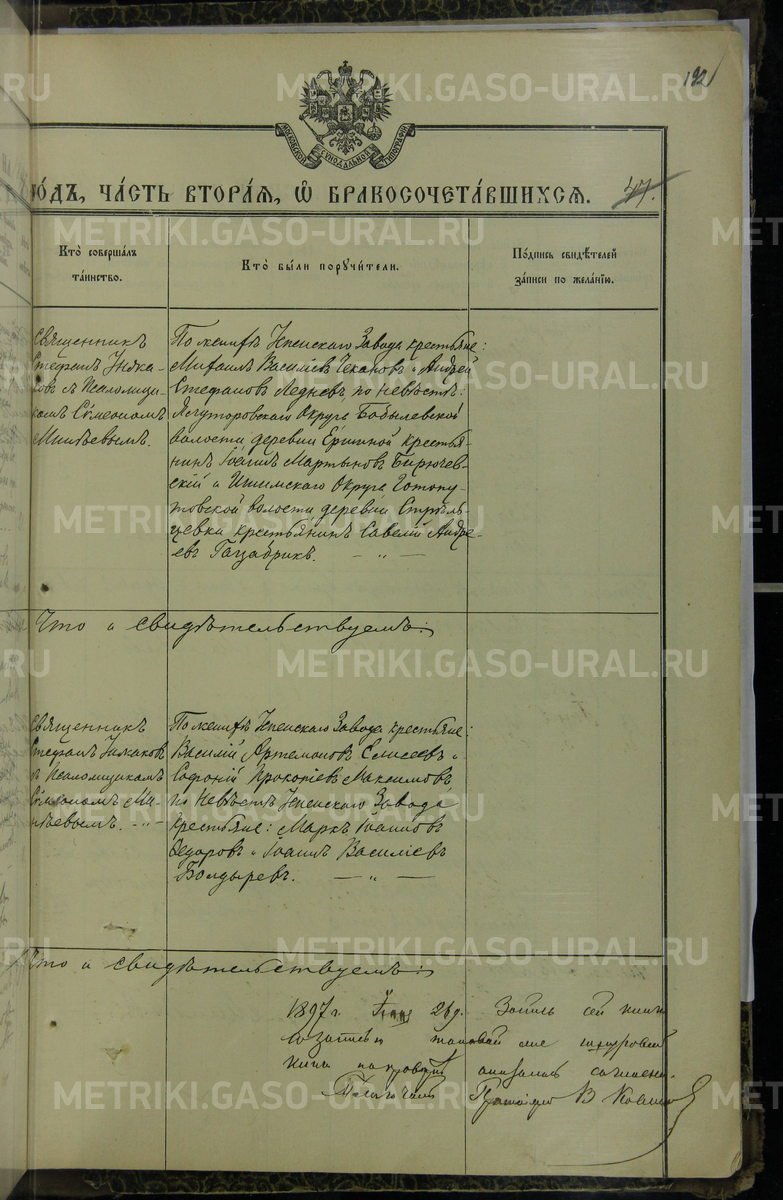 192
МОСКОВСКОЙ СѴНОДАЛЬНОЙ ТИПОГРАФІИ
го́дъ, ча́сть втора́ѧ, ѡ҆ бракосочета́вшихсѧ.
47.
Кто̀ соверша́лъ
та́инство.
Кто̀ бы́ли порꙋчи́тели.
По́дпись свидѣ́телей
за́писи по жела́нію.
Священникъ
Стефанъ
съ Псаломщи-
комъ Сѵмеономъ
Минѣевымъ.
По женихѣ Успенскаго Завода крестьяне:
Михаилъ Василіевъ Чекановъ и Андрей
Стефановъ Леднев, по невѣстѣ:
Ялуторовскаго Округа Бобылевской
волости деревни крестья-
нинъ Іоаннъ Мартыновъ Бирючев-
скій и Ишимскаго Округа Готопу-
товской волости деревни Стрѣль-
цевки крестьянинъ Савелій Андре-
евъ Гацабрикъ. — „ —
Что и свидѣтельствуемъ:
Священникъ
Стефанъ
съ Псаломщикомъ
Сѵмеономъ Ми-
нѣевымъ. — „ —
По женихѣ Успенскаго Завода крестьяне:
Василій Артемоновъ Елисеевъ и
Софоній Прокопіевъ Максимовъ
по Невѣстѣ Успенскаго Завода
крестьяне: Маркъ Іоанновъ
Ѳедоровъ и Іоаннъ Василіевъ
Болдыревъ. — „ —
Что и свидѣтельствуемъ:
1897 г. 26 д. Запись сей книги
съ записью таковой же шнуровой
книги согласна.
В.
METRIKI.GASO-URAL.RU